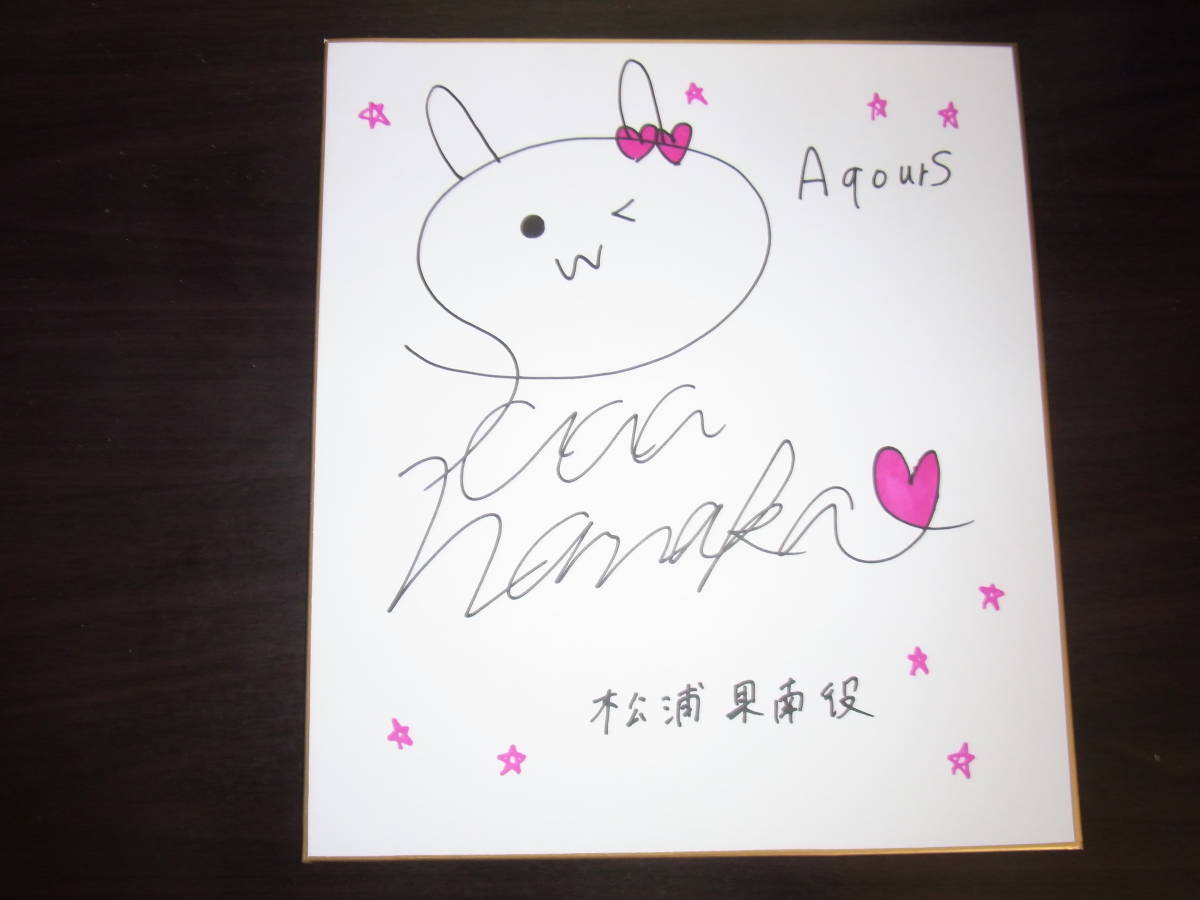 Aqours
nanaka
松浦果南役